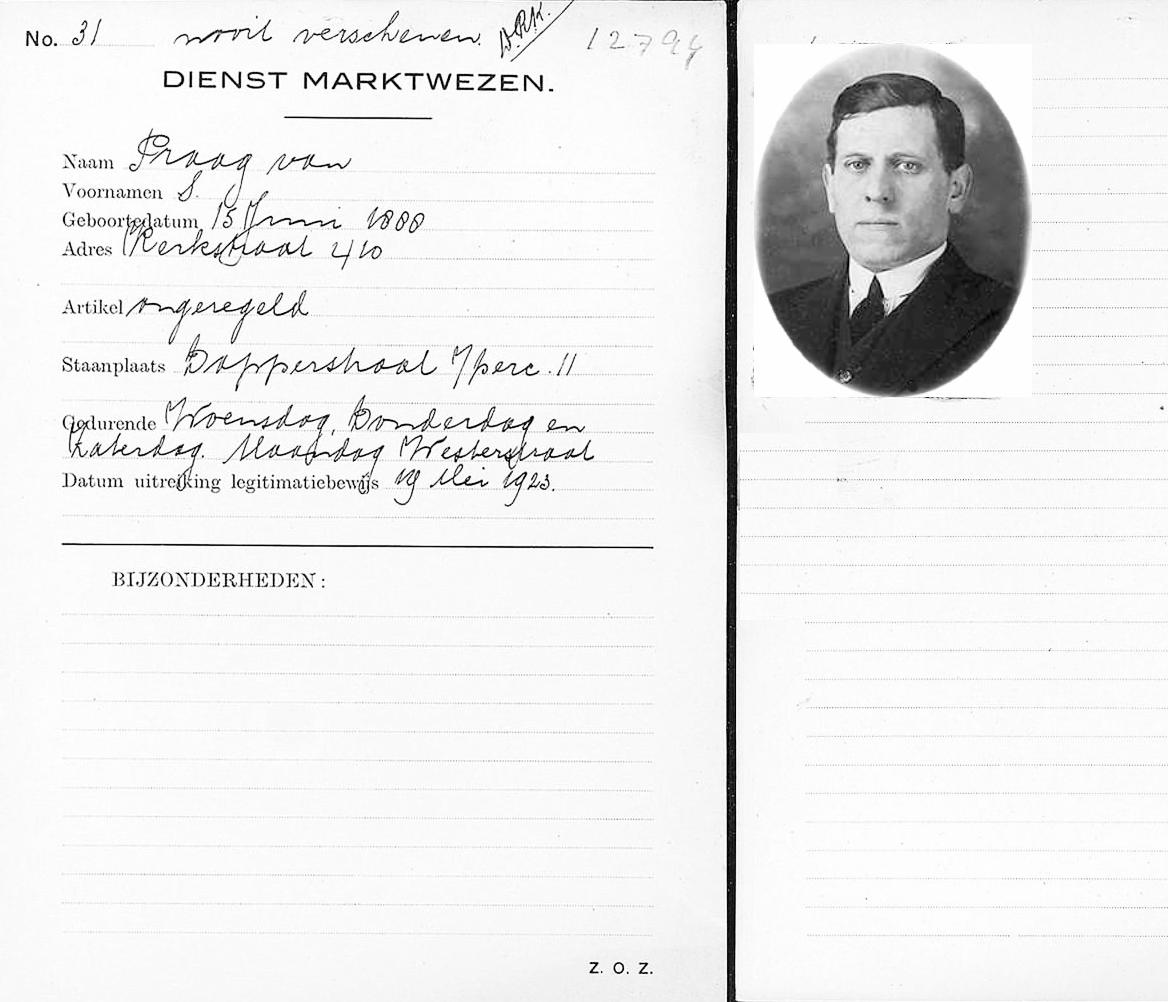 No. 31 nooit verschenen. D.R.K. 12794
DIENST MARKTWEZEN.
Naam Praag van
Voornamen S.
Geboortedatum 15 Juni 1888
Adres Kerkstraat 410
Artikel ongeregeld
Staanplaats Dapperstraat perc. 11
Gedurende Woensdag, Donderdag en
Zaterdag. Maandag Westerstraat
Datum uitreiking legitimatiebewijs 19 Mei 1923.
BIJZONDERHEDEN:
Z. O. Z.